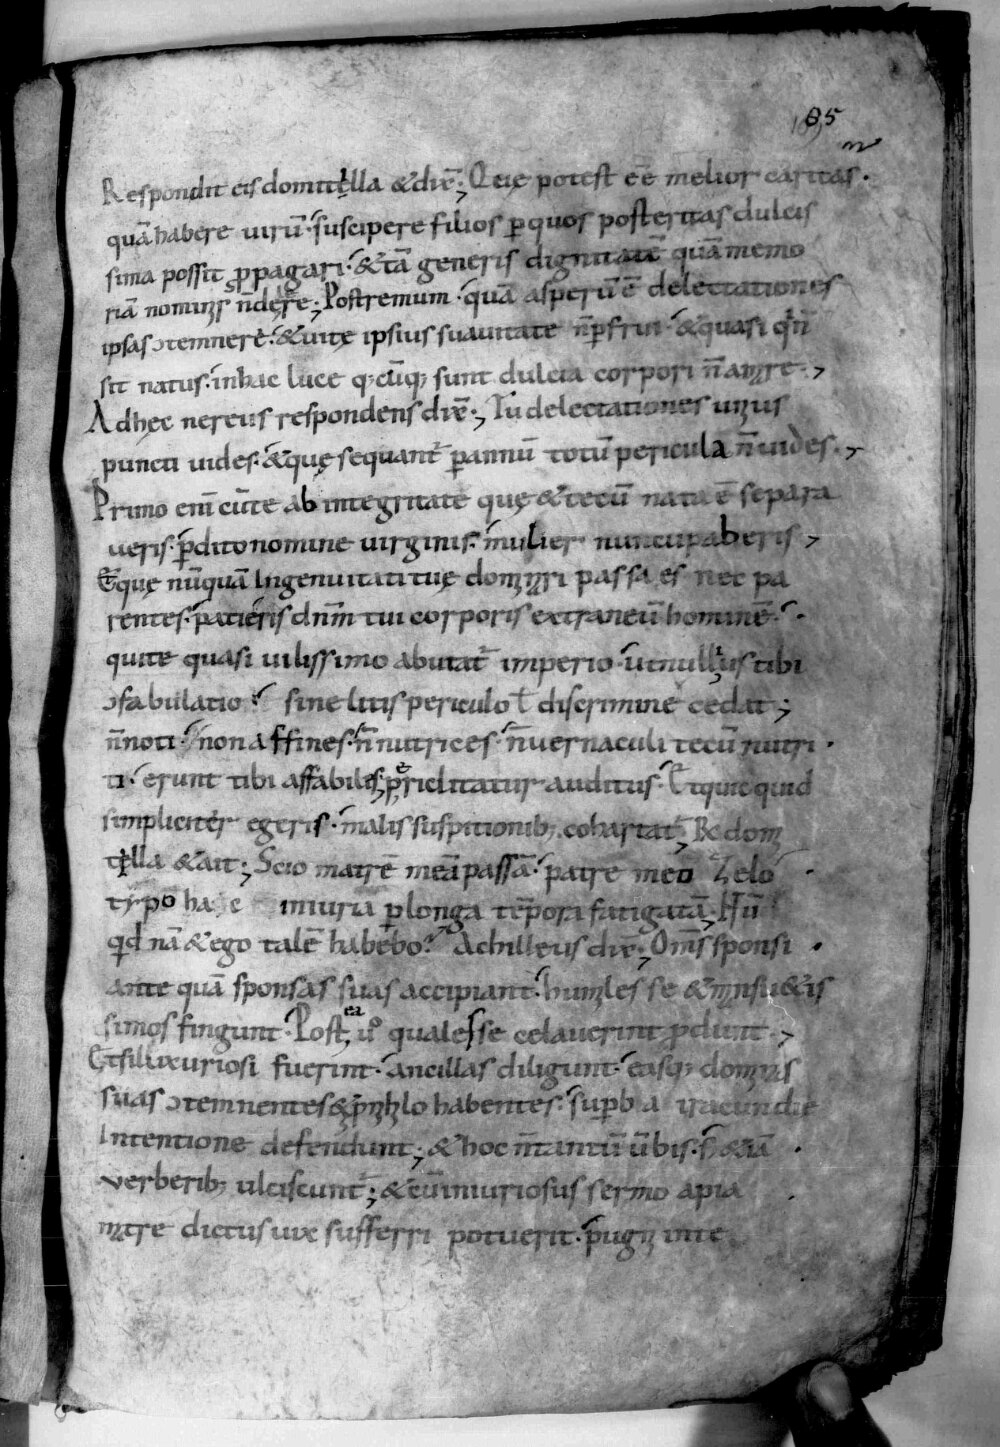 85
Respondit eis domitęlla &dix̄; Quę potest eē melior caritas·
quā habere uirū· suscipere filios ꝑ quos posteritas dulcis
sima possit ꝓpagari· &tā generis dignitatē quā memo
riā nominis n̄ deęre; Postremum· quā asperū ē delectationes
ipsas ɔtemnere· &uitę ipsius suauitate n̄ ꝑfrui· &quasi qi n̄
sit natus· in hac luce q;cūq; sunt dulcia corpori n̄ amare·;
Ad hęc nereus respondens dix̄·; Tu delectationes unius
puncti uides· &quę sequant̄ ꝑ annū totū pericula n̄ uides·;
Primo eni cū te ab integritate quę &tecū nata ē separa
ueris· ꝑdito nomine uirginis· mulier nuncupaberis;
Et quę nūquā Ingenuitati tuę dominari passa es nec pa
rentes· patieris dnm̄ tui corporis extraneū hominē·
qui te quasi uilissimo abutat̄ imperio· ut nullius tibi
ɔfabulatio sine litis periculo ł discrimine cedat;
n̄ noti· non affines· n̄ nutrices· n̄ uernaculi tecū nutri
ti· erunt tibi affabiles; ꝑiclitatur auditus· Et quicquid
simpliciter egeris· malis suspitionib; cohartat̄; R& dom
tęlla &ait; Scio matrē meā passā· patre meo zelo
typo iniuria ꝑ longa tēpora fatigatā;
qd nā &ego talē habebo? Achilleus dix̄; Om̄s sponsi
ante quā sponsas suas accipiant· humiles se &mansu&is
simos fingunt· Postea; ů quales se celauerint ꝓdunt·;
Et si luxuriosi fuerint· ancillas diligunt· easq; dominas
suas ɔtemnentes &ꝓ nihilo habentes· suꝑba iracundię
Intentione defendunt; &hoc n̄ tantū ūbis· s; &iā
verberib; ulciscunt̄; &cū iniuriosus sermo a pia
matre dictus uix sufferri potuerit· pugni inte